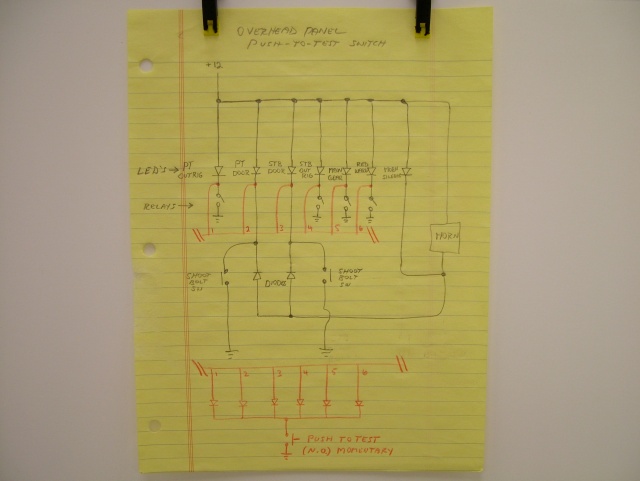 OVERHEAD PANEL
PUSH-TO-TEST SWITCH
+12
LED'S → PT OUTRIG
PT DOOR
STB DOOR
STB OUT RIG
MAIN GEAR
HORN
RELAYS →
1 2 3 4 5 6
HORN
SHOOT BOLT SW
DIODES
SHOOT BOLT SW
1 2 3 4 5 6
PUSH TO TEST
(N.O) MOMENTARY